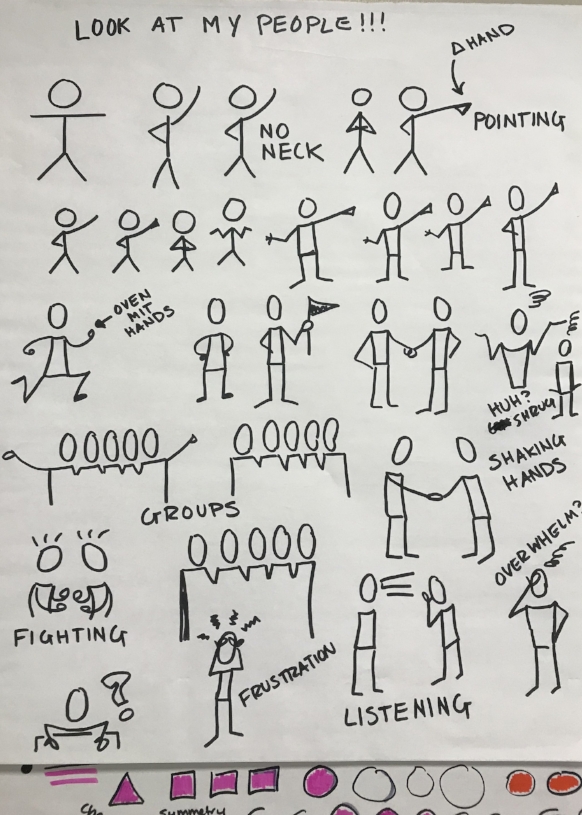 LOOK AT MY PEOPLE!!!
Δ HAND
NO
NECK
POINTING
OVEN
MIT
HANDS
HUH?
SHRUG
SHAKING
HANDS
GROUPS
OVERWHELM?
FIGHTING
?
FRUSTRATION
LISTENING
symmetry